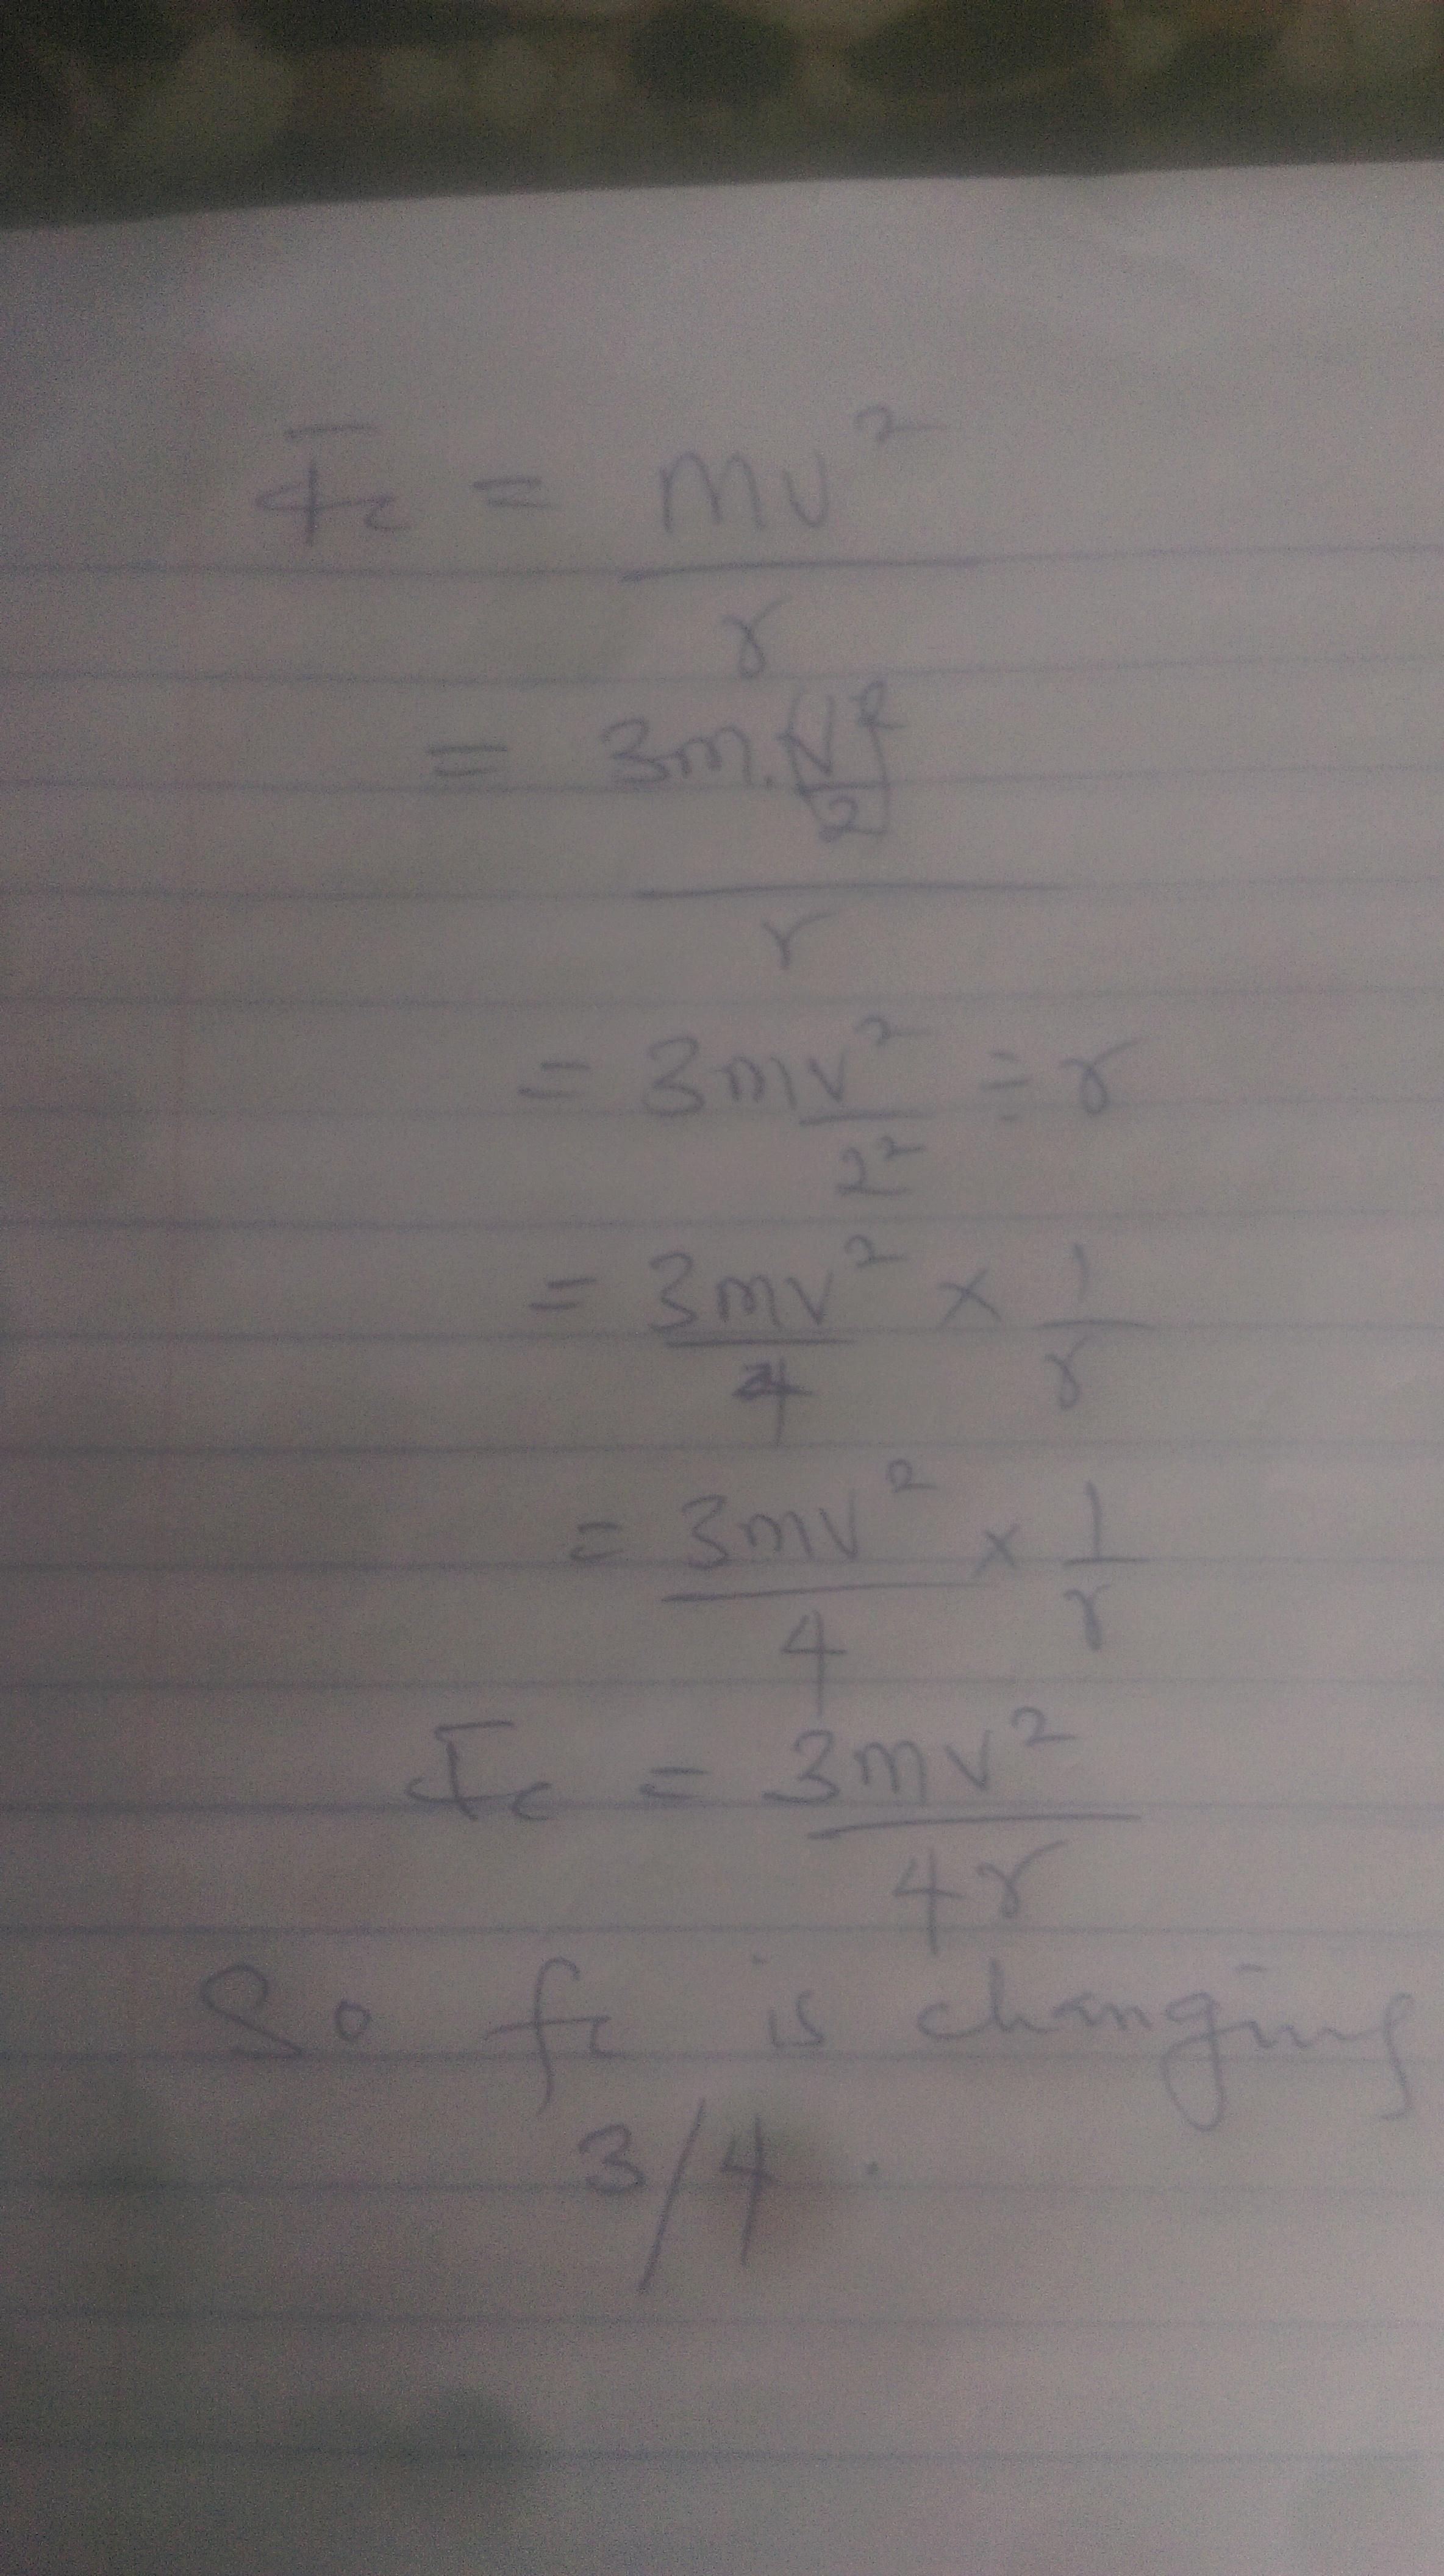 Fc = mv²/r
= 3m.(v/2)²/r
= 3mv²/2² ÷ r
= 3mv²/4 × 1/r
= 3mv²/4 × 1/r
Fc = 3mv²/4r
So fc is changing
3/4.